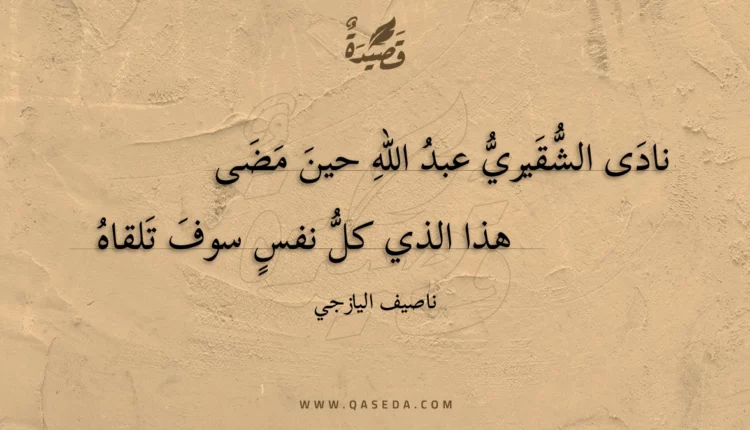 قَصِيْدَةٌ
نادَى الشُّقَيريُّ عبدُ اللهِ حينَ مَضَى
هذا الذي كلُّ نفسٍ سوفَ تَلقاهُ
ناصيف اليازجي
WWW.QASEDA.COM